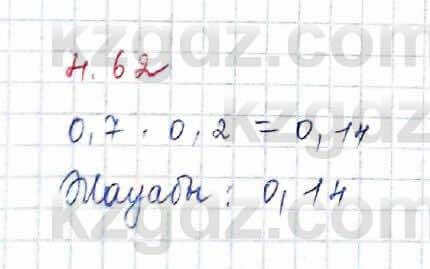 4.62
0,7 · 0,2 = 0,14
Жауабы: 0,14
kzgdz.com
kzgdz.com
kzgdz.com